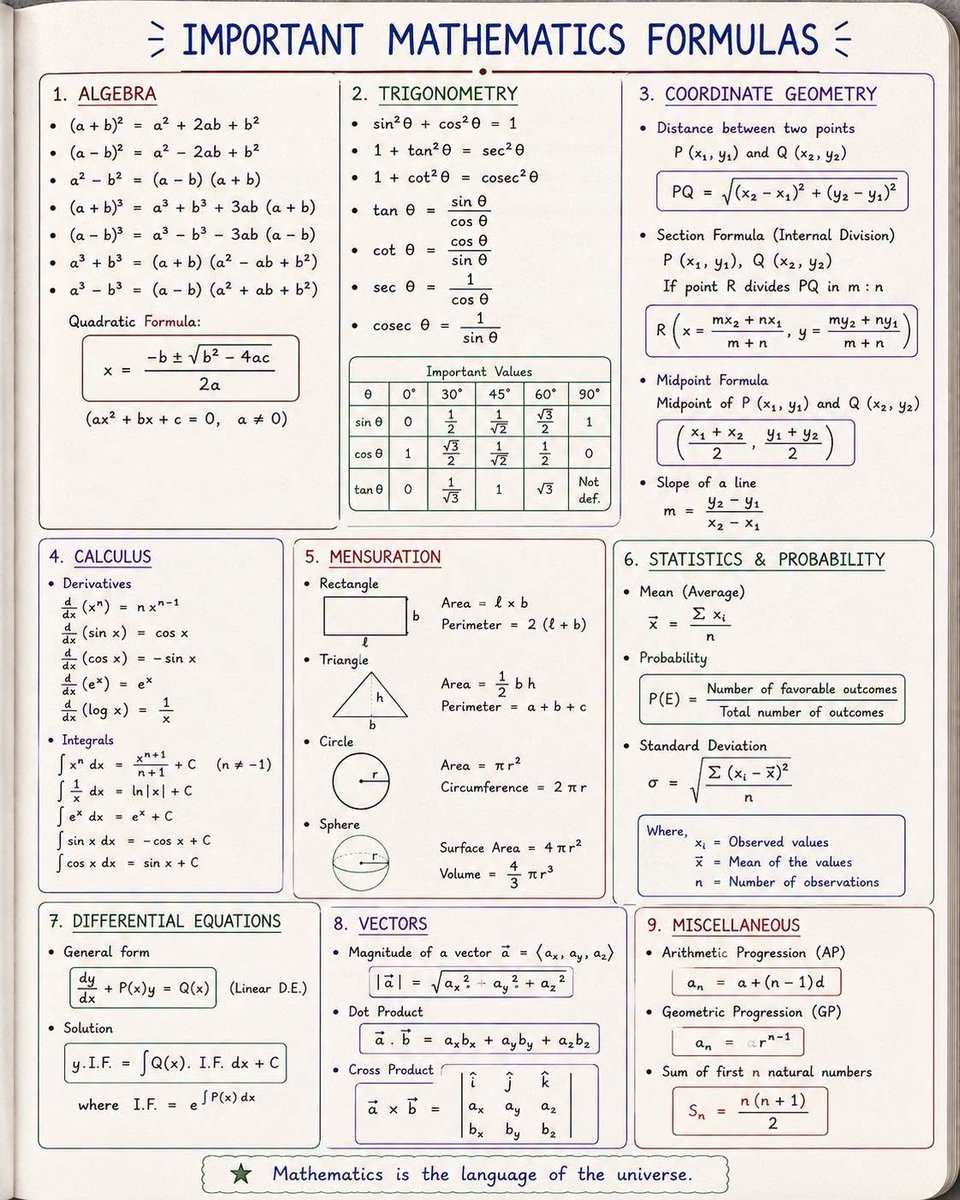 IMPORTANT MATHEMATICS FORMULAS
1. ALGEBRA
• (a + b)² = a² + 2ab + b²
• (a − b)² = a² − 2ab + b²
• a² − b² = (a − b) (a + b)
• (a + b)³ = a³ + b³ + 3ab (a + b)
• (a − b)³ = a³ − b³ − 3ab (a − b)
• a³ + b³ = (a + b) (a² − ab + b²)
• a³ − b³ = (a − b) (a² + ab + b²)
Quadratic Formula:
x = (−b ± √(b² − 4ac)) / 2a
(ax² + bx + c = 0, a ≠ 0)
2. TRIGONOMETRY
• sin²θ + cos²θ = 1
• 1 + tan²θ = sec²θ
• 1 + cot²θ = cosec²θ
• tan θ = sin θ / cos θ
• cot θ = cos θ / sin θ
• sec θ = 1 / cos θ
• cosec θ = 1 / sin θ
Important Values
θ 0° 30° 45° 60° 90°
sin θ 0 1/2 1/√2 √3/2 1
cos θ 1 √3/2 1/√2 1/2 0
tan θ 0 1/√3 1 √3 Not def.
3. COORDINATE GEOMETRY
• Distance between two points
P (x₁, y₁) and Q (x₂, y₂)
PQ = √((x₂ − x₁)² + (y₂ − y₁)²)
• Section Formula (Internal Division)
P (x₁, y₁), Q (x₂, y₂)
If point R divides PQ in m : n
R (x = (mx₂ + nx₁) / (m + n), y = (my₂ + ny₁) / (m + n))
• Midpoint Formula
Midpoint of P (x₁, y₁) and Q (x₂, y₂)
((x₁ + x₂) / 2, (y₁ + y₂) / 2)
• Slope of a line
m = (y₂ − y₁) / (x₂ − x₁)
4. CALCULUS
• Derivatives
d/dx (xⁿ) = n xⁿ⁻¹
d/dx (sin x) = cos x
d/dx (cos x) = − sin x
d/dx (eˣ) = eˣ
d/dx (log x) = 1/x
• Integrals
∫ xⁿ dx = xⁿ⁺¹ / (n+1) + C (n ≠ −1)
∫ 1/x dx = ln|x| + C
∫ eˣ dx = eˣ + C
∫ sin x dx = − cos x + C
∫ cos x dx = sin x + C
5. MENSURATION
• Rectangle
b
ℓ
Area = ℓ x b
Perimeter = 2 (ℓ + b)
• Triangle
h
b
Area = 1/2 b h
Perimeter = a + b + c
• Circle
r
Area = π r²
Circumference = 2 π r
• Sphere
r
Surface Area = 4 π r²
Volume = 4/3 π r³
6. STATISTICS & PROBABILITY
• Mean (Average)
x⃗ = Σ xᵢ / n
• Probability
P(E) = Number of favorable outcomes / Total number of outcomes
• Standard Deviation
σ = √(Σ (xᵢ − x⃗)² / n)
Where,
xᵢ = Observed values
x⃗ = Mean of the values
n = Number of observations
7. DIFFERENTIAL EQUATIONS
• General form
dy/dx + P(x)y = Q(x) (Linear D.E.)
• Solution
y.I.F. = ∫ Q(x). I.F. dx + C
where I.F. = e^∫ P(x) dx
8. VECTORS
• Magnitude of a vector a⃗ = ⟨aₓ, a_y, a_z⟩
|a⃗| = √(aₓ² + a_y² + a_z²)
• Dot Product
a⃗ . b⃗ = aₓbₓ + a_yb_y + a_zb_z
• Cross Product
î ĵ k̂
a⃗ × b⃗ = aₓ a_y a_z
bₓ b_y b_z
9. MISCELLANEOUS
• Arithmetic Progression (AP)
aₙ = a + (n − 1) d
• Geometric Progression (GP)
aₙ = arⁿ⁻¹
• Sum of first n natural numbers
Sₙ = n (n + 1) / 2
★ Mathematics is the language of the universe.